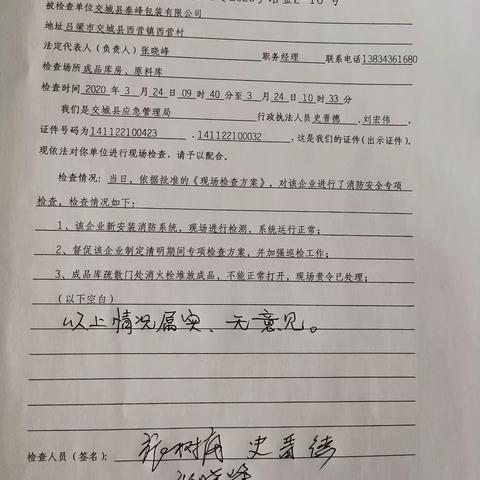 被检查单位交城县泰峰包装有限公司
地址吕梁市交城县西营镇西营村
法定代表人（负责人）张晓峰 职务经理 联系电话13834361680
检查场所成品库房、原料库
检查时间 2020 年 3 月 24 日 09 时 40 分至 3 月 24 日 10 时 33 分
我们是交城县应急管理局 行政执法人员史晋德 、刘宏伟 ，
证件号码为141122100423 、141122100032 ，这是我们的证件(出示证件)。
现依法对你单位进行现场检查，请予以配合。
检查情况：当日，依据批准的《现场检查方案》，对该企业进行了消防安全专项
检查，检查情况如下：
1、该企业新安装消防系统，现场进行检测，系统运行正常；
2、督促该企业制定清明期间专项检查方案，并加强巡检工作；
3、成品库疏散门处消火栓堆放成品，不能正常打开，现场责令已处理；
(以下空白)
以上情况属实、无意见。
检查人员（签名）： 史晋德